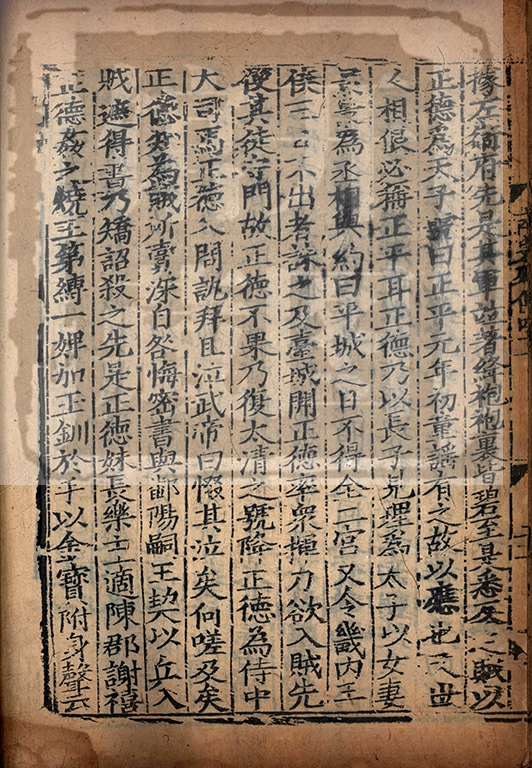 據左衛府先是其軍並著絳袍袍裏皆碧至是悉反之賊以
正德為天子號曰正平元年初童謠有之故以應也又世
人相佷必稱正平耳正德乃以長子見理為太子以女妻
景景為丞相與約曰平城之日不得全二宮又令畿內王
侯三日不出者誅之及臺城開正德率衆揮刀欲入賊先
使其徒守門故正德不果乃復太清之號降正德為侍中
大司馬正德入問訊拜且泣武帝曰惙其泣矣何嗟及矣
正德知為賊所賣深自咎悔密書與鄱陽嗣王契以兵入
賊遮得書乃矯詔殺之先是正德妹長樂主適陳郡謝禧
正德姦之燒主第縛一婢加玉釧於手以金寶附身聲云